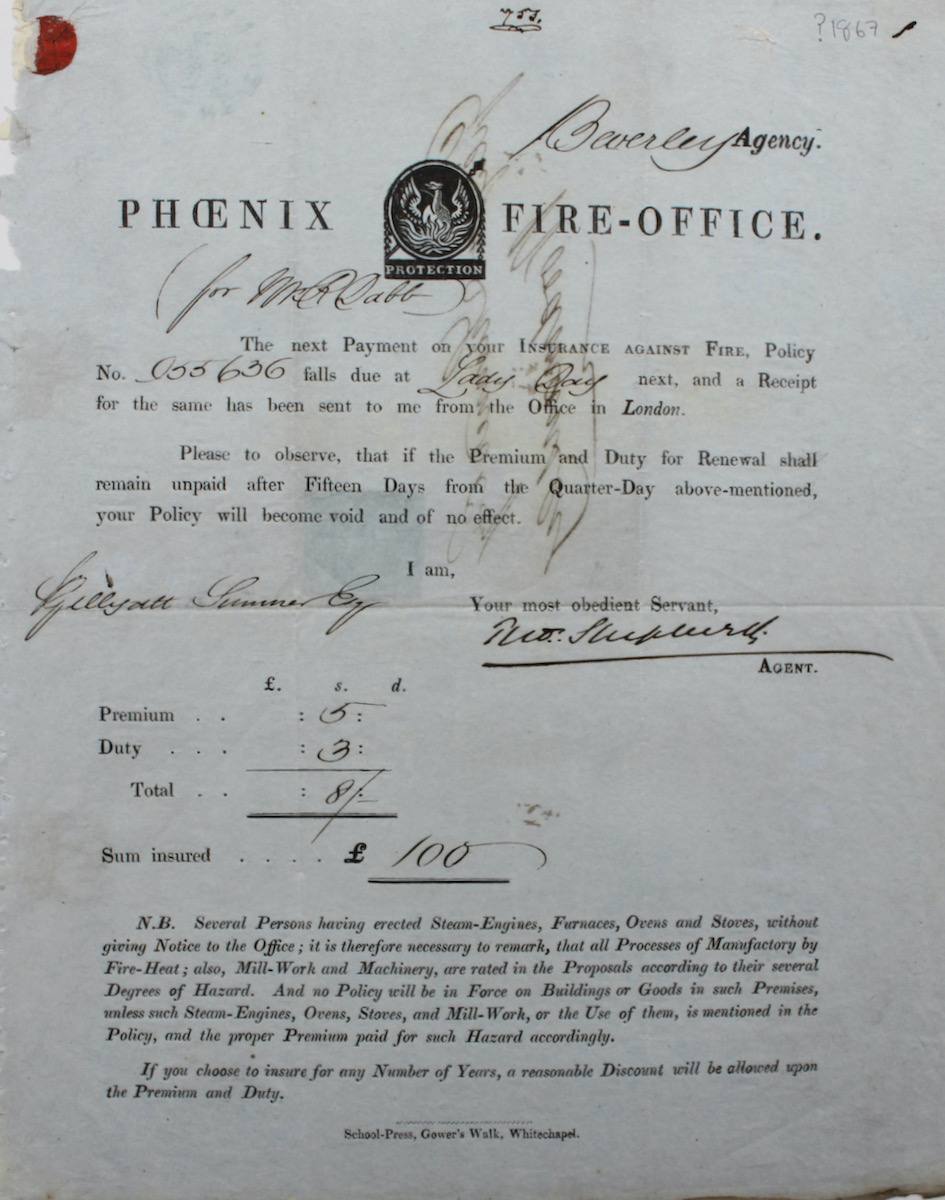 755.
? 1867
Beverley Agency.
PHŒNIX FIRE-OFFICE.
PROTECTION
(for Mr R Dabb)
The next Payment on your INSURANCE AGAINST FIRE, Policy
No. 055636 falls due at Lady Day next, and a Receipt
for the same has been sent to me from the Office in London.
Please to observe, that if the Premium and Duty for Renewal shall
remain unpaid after Fifteen Days from the Quarter-Day above-mentioned,
your Policy will become void and of no effect.
I am,
Sumner Esq
Your most obedient Servant,
AGENT.
£. s. d.
Premium . . : 5 :
Duty . . . : 3 :
Total . . : 8/-
Sum insured . . . . £ 100
N.B. Several Persons having erected Steam-Engines, Furnaces, Ovens and Stoves, without
giving Notice to the Office; it is therefore necessary to remark, that all Processes of Manufactory by
Fire-Heat; also, Mill-Work and Machinery, are rated in the Proposals according to their several
Degrees of Hazard. And no Policy will be in Force on Buildings or Goods in such Premises,
unless such Steam-Engines, Ovens, Stoves, and Mill-Work, or the Use of them, is mentioned in the
Policy, and the proper Premium paid for such Hazard accordingly.
If you choose to insure for any Number of Years, a reasonable Discount will be allowed upon
the Premium and Duty.
School-Press, Gower's Walk, Whitechapel.